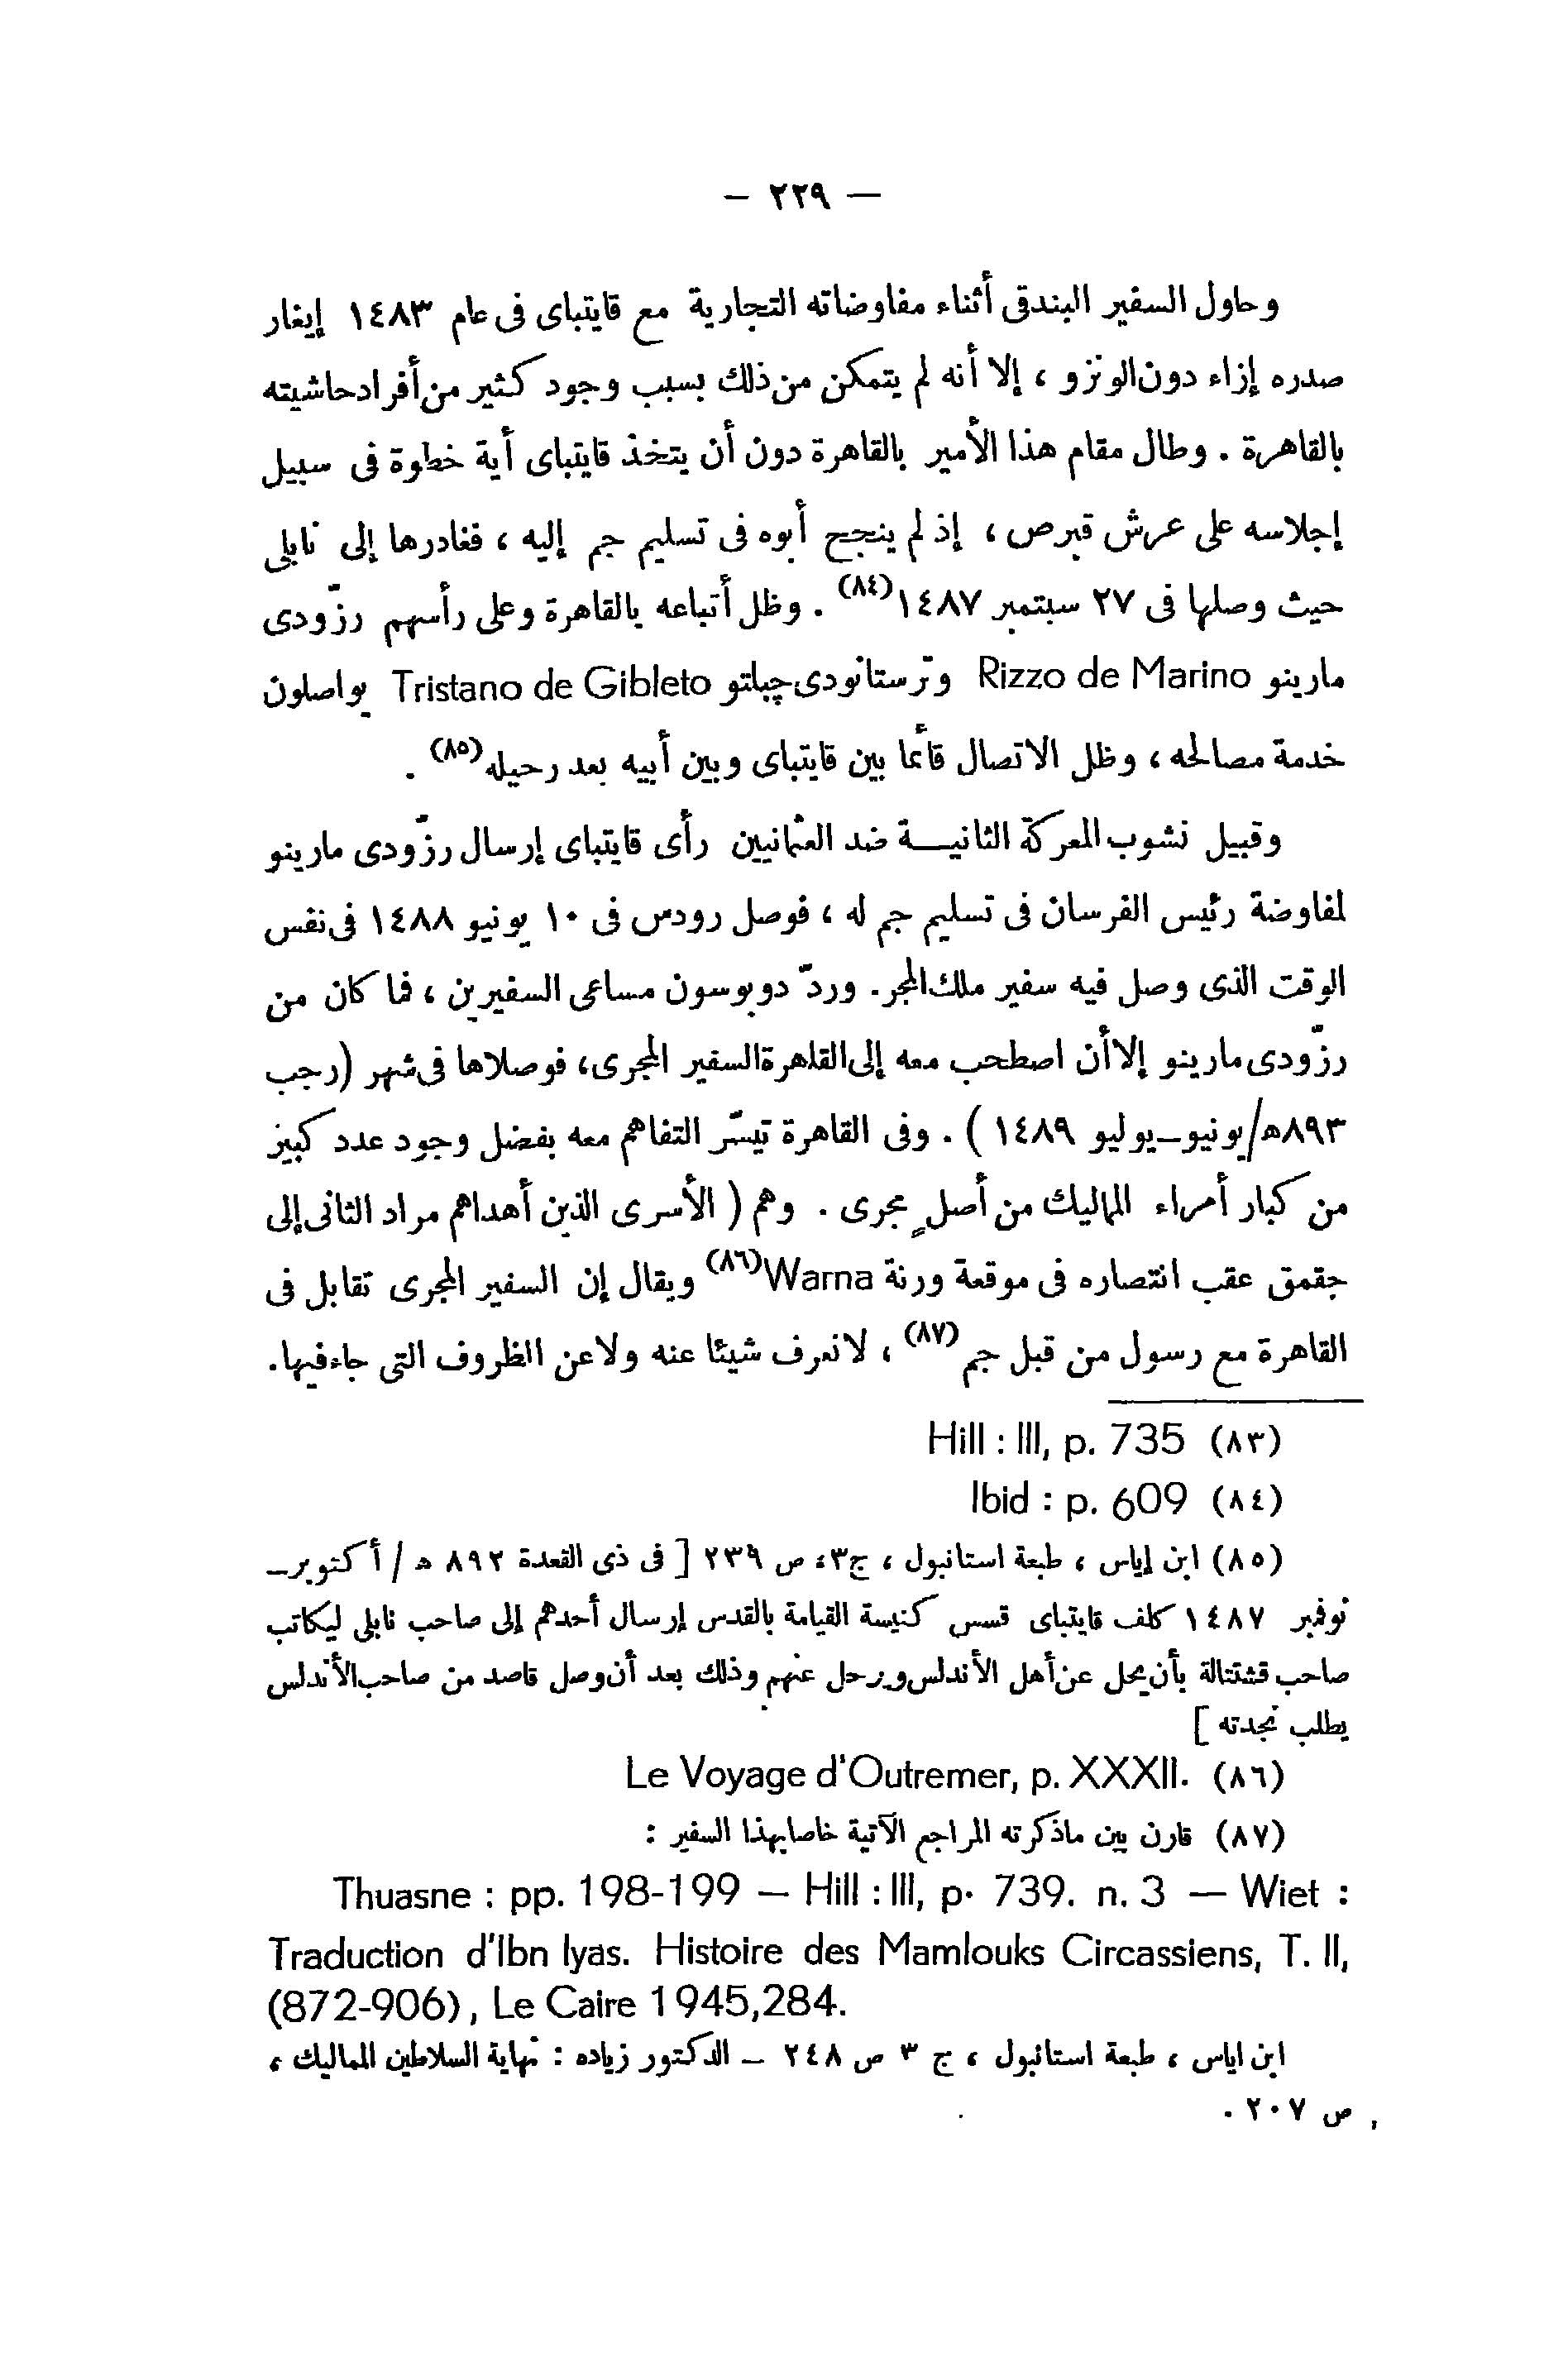 — ٢٢٩ —
وحاول السفير البندقى أثناء مفاوضاته التجارية مع قايتباى فى عام ١٤٨٣ إيغار
صدره إزاء دون الونزو ، إلا أنه لم يتمكن من ذلك بسبب وجود كثير من أفراد حاشيته
بالقاهرة . وطال مقام هذا الأمير بالقاهرة دون أن يتخذ قايتباى أية خطوة فى سبيل
إجلاسه على عرش قبرص ، إذ لم ينجح أبوه فى تسليم جم إليه ، فغادرها إلى نابلى
حيث وصلها فى ٢٧ سبتمبر ١٤٨٧(٨٤) . وظل أتباعه بالقاهرة وعلى رأسهم رزّودى
مارينو Rizzo de Marino وترستانودى چبلتو Tristano de Gibleto يواصلون
خدمة مصالحه ، وظل الاتصال قائما بين قايتباى وبين أبيه بعد رحيله(٨٥) .
وقبيل نشوب المعركة الثانيــة ضد العثمانيين رأى قايتباى إرسال رزّودى مارينو
لمفاوضة رئيس الفرسان فى تسليم جم له ، فوصل رودس فى ١٠ يونيو ١٤٨٨ فى نفس
الوقت الذى وصل فيه سفير ملك المجر . وردّ دوبوسون مساعى السفيرين ، فما كان من
رزّودى مارينو إلا أن اصطحب معه إلى القاهرة السفير المجرى ، فوصلاها فى شهر (رجب
٨٩٣ه/يونيو-يوليو ١٤٨٩ ) . وفى القاهرة تيسّر التفاهم معه بفضل وجود عدد كبير
من كبار أمراء المماليك من أصلٍ مجرى . وهم ( الأسرى الذين أهداهم مراد الثانى إلى
جقمق عقب انتصاره فى موقعة ورنة Warna(٨٦) ويقال إن السفير المجرى تقابل فى
القاهرة مع رسول من قبل جم(٨٧) ، لا نعرف شيئا عنه ولا عن الظروف التى جاء فيها .
(٨٣) Hill : III, p. 735
(٨٤) Ibid : p. 609
(٨٥) ابن إياس ، طبعة استانبول ، ج٣ ، ص ٢٣٩ [ فى ذى القعدة ٨٩٢ ه / أكتوبر-
نوفمبر ١٤٨٧ كلف قايتباى قسس كنيسة القيامة بالقدس إرسال أحدهم إلى صاحب نابلى ليكاتب
صاحب قشتالة بأن يحل عن أهل الأندلس ويرحل عنهم وذلك بعد أن وصل قاصد من صاحب الأندلس
يطلب نجدته ]
(٨٦) Le Voyage d'Outremer, p. XXXII.
(٨٧) قارن بين ماذكرته المراجع الآتية خاصا بهذا السفير :
Thuasne : pp. 198-199 — Hill : III, p. 739. n. 3 — Wiet :
Traduction d'Ibn Iyas. Histoire des Mamlouks Circassiens, T. II,
(872-906), Le Caire 1945,284.
ابن اياس ، طبعة استانبول ، ج ٣ ص ٢٤٨ — الدكتور زياده : نهاية السلاطين المماليك ،
ص ٢٠٧ .